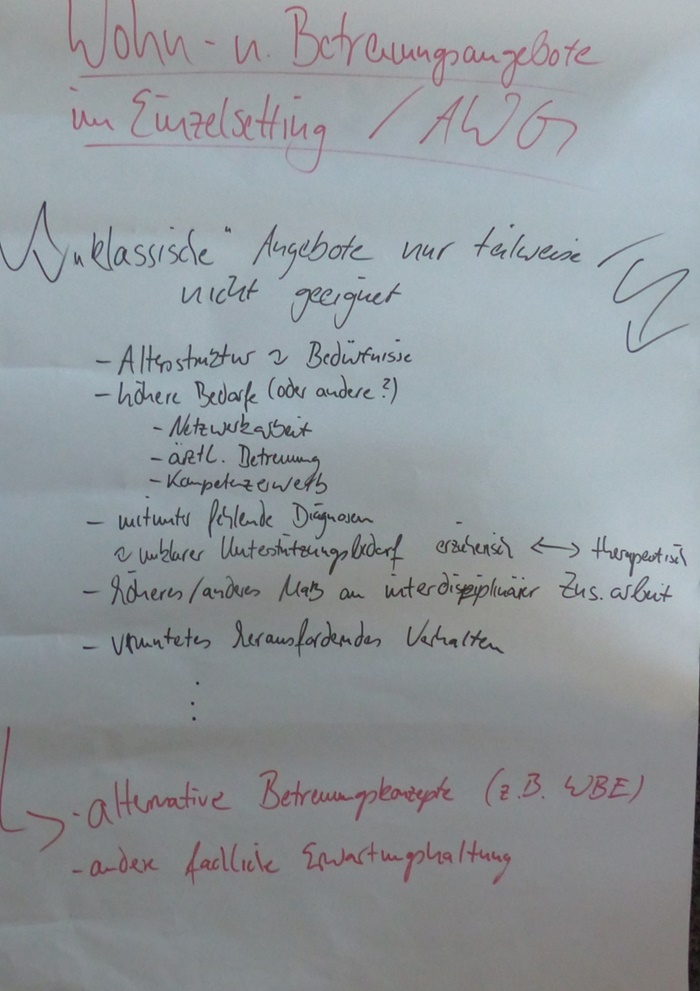 Wohn- u. Betreuungsangebote
im Einzelsetting / AWG
„klassische“ Angebote nur teilweise
nicht geeignet
- Altersstruktur ~ Bedürfnisse
- höhere Bedarfe (oder andere?)
- Netzwerkarbeit
- ärztl. Betreuung
- Kompetenzerwerb
- mitunter fehlende Diagnosen
~ unklarer Unterstützungsbedarf erzieherisch ↔ therapeutisch
- höheres/anderes Maß an interdisziplinärer Zus.arbeit
- vermutetes herausforderndes Verhalten
⋮
- alternative Betreuungskonzepte (z.B. WBE)
- andere fachliche Erwartungshaltung